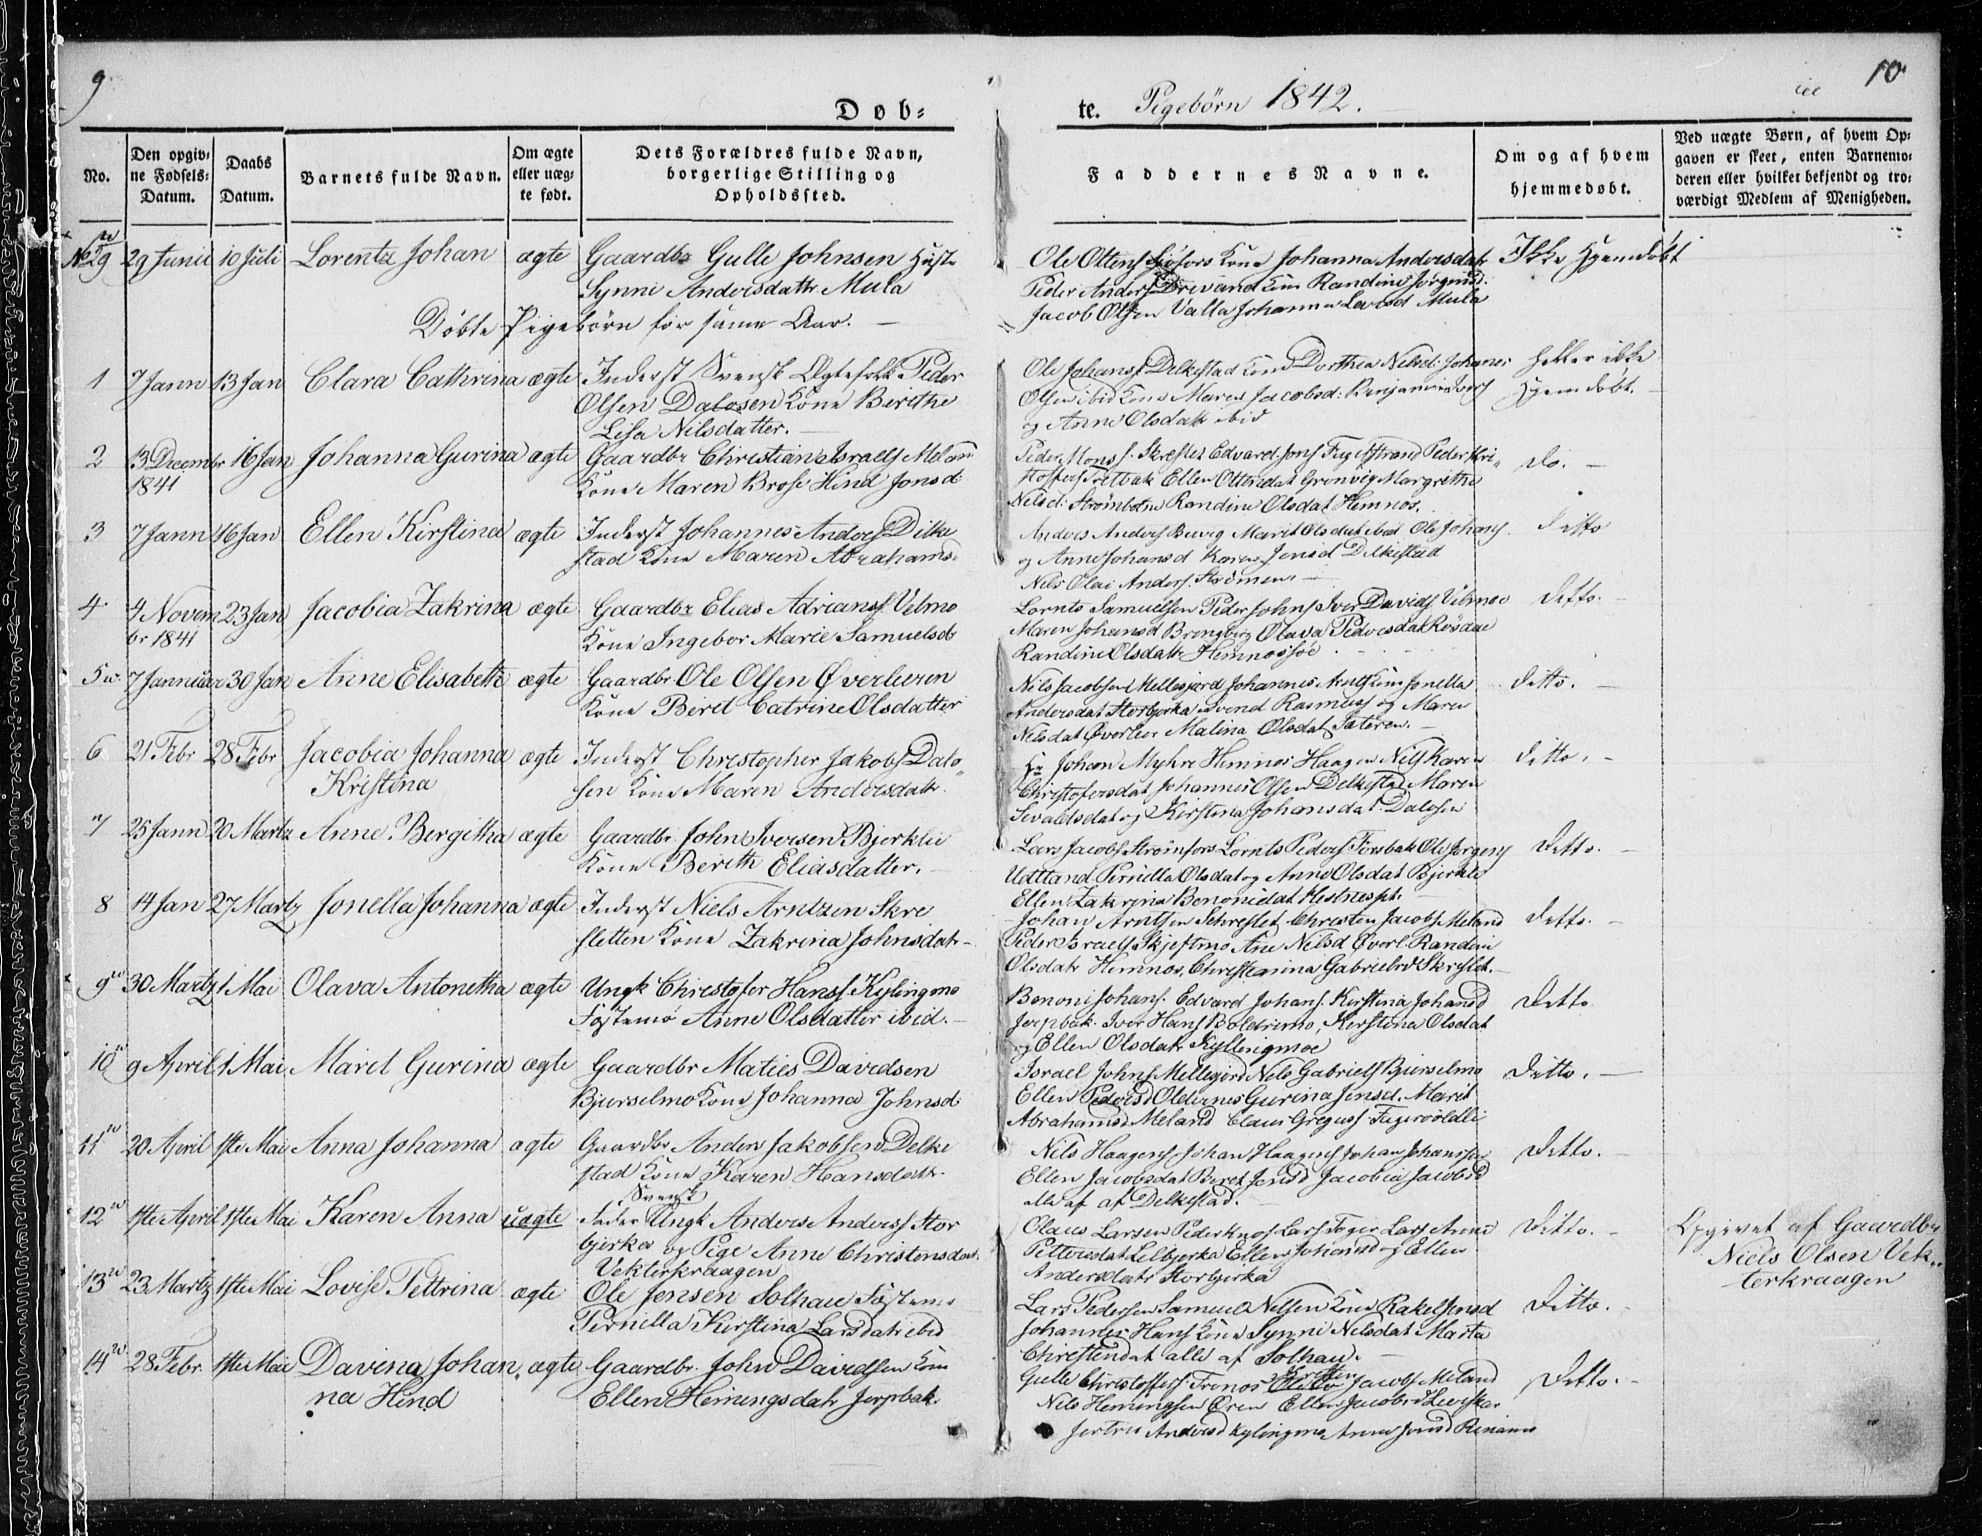 9
10
Døb=
te. Pigebørn 1842.
No.
Den opgiv=
ne Fødsels=
Datum.
Daabs
Datum.
Barnets fulde Navn.
Om ægte
eller uæg=
te født.
Dets Forældres fulde Navn,
borgerlige Stilling og
Opholdssted.
Faddernes Navne.
Om og af hvem
hjemmedøbt.
Ved uægte Børn, af hvem Op=
gaven er skeet, enten Barnemo=
deren eller hvilket bekjendt og tro=
værdigt Medlem af Menigheden.
No 29 29 Junii 10 Juli Lorentz Johan ægte Gaardbr Gulle Johnsen
Synne Andersdattr Mula
Ole Ottens Kone Johanna Andersdatr
Peder Anders Drevand Randine
Jacob Olsen Valla Johanna Larsd Mula
Ikke Hjemdøbt
Døbte Pigebørn for same Aar. —
1 7 Jann 13 Jan Clara Cathrina ægte Inderst Svensk Ægtefolk Peder
Olsen Dalosen Kone Berithe
Lisa Nilsdatter. —
Ole Johans Delkestad Kone Dorthea Nilsd: Johanes
Olsen ibid Kone Maren Jacobsd: Benjamin
og Anne Olsdatr ibid
heller ikke
Hjemdøbt. —
2 13 Decembr 1841 16 Jan Johanna Gurina ægte Gaardbr Christian Israels Meland
Kone Maren Brose Hind Jonsd
Peder Mons. Edvard Jons Peder Kri=
stoffers Ellen Ottersdat Grønvig Margrethe
Nilsd: Strømbotn Randine Olsdat Hemnes.
do. —
3 7 Jann 16 Jan Ellen Kirstina ægte Inderst Johannes Anders Delke
stad Kone Maren Abrahams.
Anders Anders Marit Olsdat ibid Ole Johans
og Anne Johansd Karen Jensd Delkestad
Nils Olai Anders. Strømen. —
ditto
4 4 Novem
br 1841 23 Jan Jacobia Zakrina ægte Gaardbr Elias Adrians Velmo
Kone Ingebor Marie Samuelsd
Lornts Samuelsen Peder Johns Iver Davids Velmoe
Maren Johansd Brengberg Olava Pedersdat Røsdae
Randine Olsdatr
ditto. —
5 7 Januar 30 Jan Anne Elisabeth ægte Gaardbr. Ole Olsen Øverleeren
Kone Berit Catrine Olsdatter
Nils Jacobsen Mellesjord Johannes Jonella
Andersdat Storbjerka Svend Rasmus og Maren
Nilsdat Øverleer Malina Olsdat
ditto. —
6 21 Febr 28 Febr Jacobia Johanna
Kristina ægte Inderst Christopher Jakobs Dalo=
sen Kone Maren Andersdatr.
Johan Myhre Hemnes Haagen Nils Karen
Christofersdat Johannes Olsen Delkestad Maren
Sivaldsdat og Kirstina Johansdat Dalosen
ditto. —
7 25 Jann 20 Martz Anne Bergitha ægte Gaardbr John Iversen Bjerklie
Kone Berith Eliasdatter. —
Lars Jacobs Strømfors Lornts Peders Forsbak Ole Jørgens
Udtland Pernilla Olsdat og Anne Olsdat Bjerklie
Ellen Zakrina Benonidat
ditto. —
8 14 Jan 27 Martz Jonella Johanna ægte Inderst Niels Arntzen Skre
sletten Kone Zakrina Johnsdatr —
Johan Arntsen Schreslet Christen Jacobs Meland
Peder Israels Skjestmo Ane Nilsd Øverl. Randine
Olsdatr Hemnes, Christianna Gabrielsd Skreslet. —
ditto. —
9 30 Martz 1 Mai Olava Antonetha ægte Ungk Christofer Hans. Kylingmo
Anne Olsdatter ibid. —
Benoni Johans. Edvard Johans. Kirstina Johansd
Jerpbak. Iver Hans Boldremo, Kerstina Olsdat
og Ellen Olsdatr Kyllingmoe
ditto
10 9 April 1 Mai Marit Gurina ægte Gaardbr Maties Davidsen
Bjurselmo Kone Johanna Johnsd
Israel Johns Mellesjord Nils Gabriels Bjurselmo
Ellen Pedersd Oldernes Gurina Jensd. Marit
Abrahamsd Meland Claus Gregus Fagervoldlie
ditto. —
11 20 April 1ste Mai Anna Johanna ægte Gaardbr Anders Jakobsen Delke
stad Kone Karen Hansdatr.
Nils Haagens Johan Haagens Johan Johansen
Ellen Jacobsdat Beret Jensd Jacobia Jacobsd
alle af af Delkestad. —
ditto. —
12 1ste April 1ste Mai Karen Anna uægte Svensk
Fader Ungk Anders Anders Stor
bjerka og Pige Anne Christensdat
Vekterkraagen
Olaus Larsen Peder Lars Anne
Pettersdat Lelbjerka Ellen Johansd og Ellen
Andersdatr Storbjerka
ditto. —
Opgivet af Gaardbr
Niels Olsen Vek=
terkraagen
13 23 Martz 1ste Mai Lovise Pettrina ægte Ole Jensen Solhau
Pernilla Kirstina Larsdatr ibid
Lars Pedersen Samuel Nilsen Kone Rakel Jensd
Johannes Hans Kone Synne Nilsdat Marta
Christendat alle af Solhau. —
ditto.
14 28 Febr. 1ste Mai Davina Johan=
na Hind ægte Gaardbr. John Davidsen Kone
Ellen Hemingsdatr Jerpbak.
Gulle Christoffers. Jacobs Meland
Nils Hemingsen Øren Ellen Jacobsd
Andersd Kylingmo Anne Jonsd
ditto. —